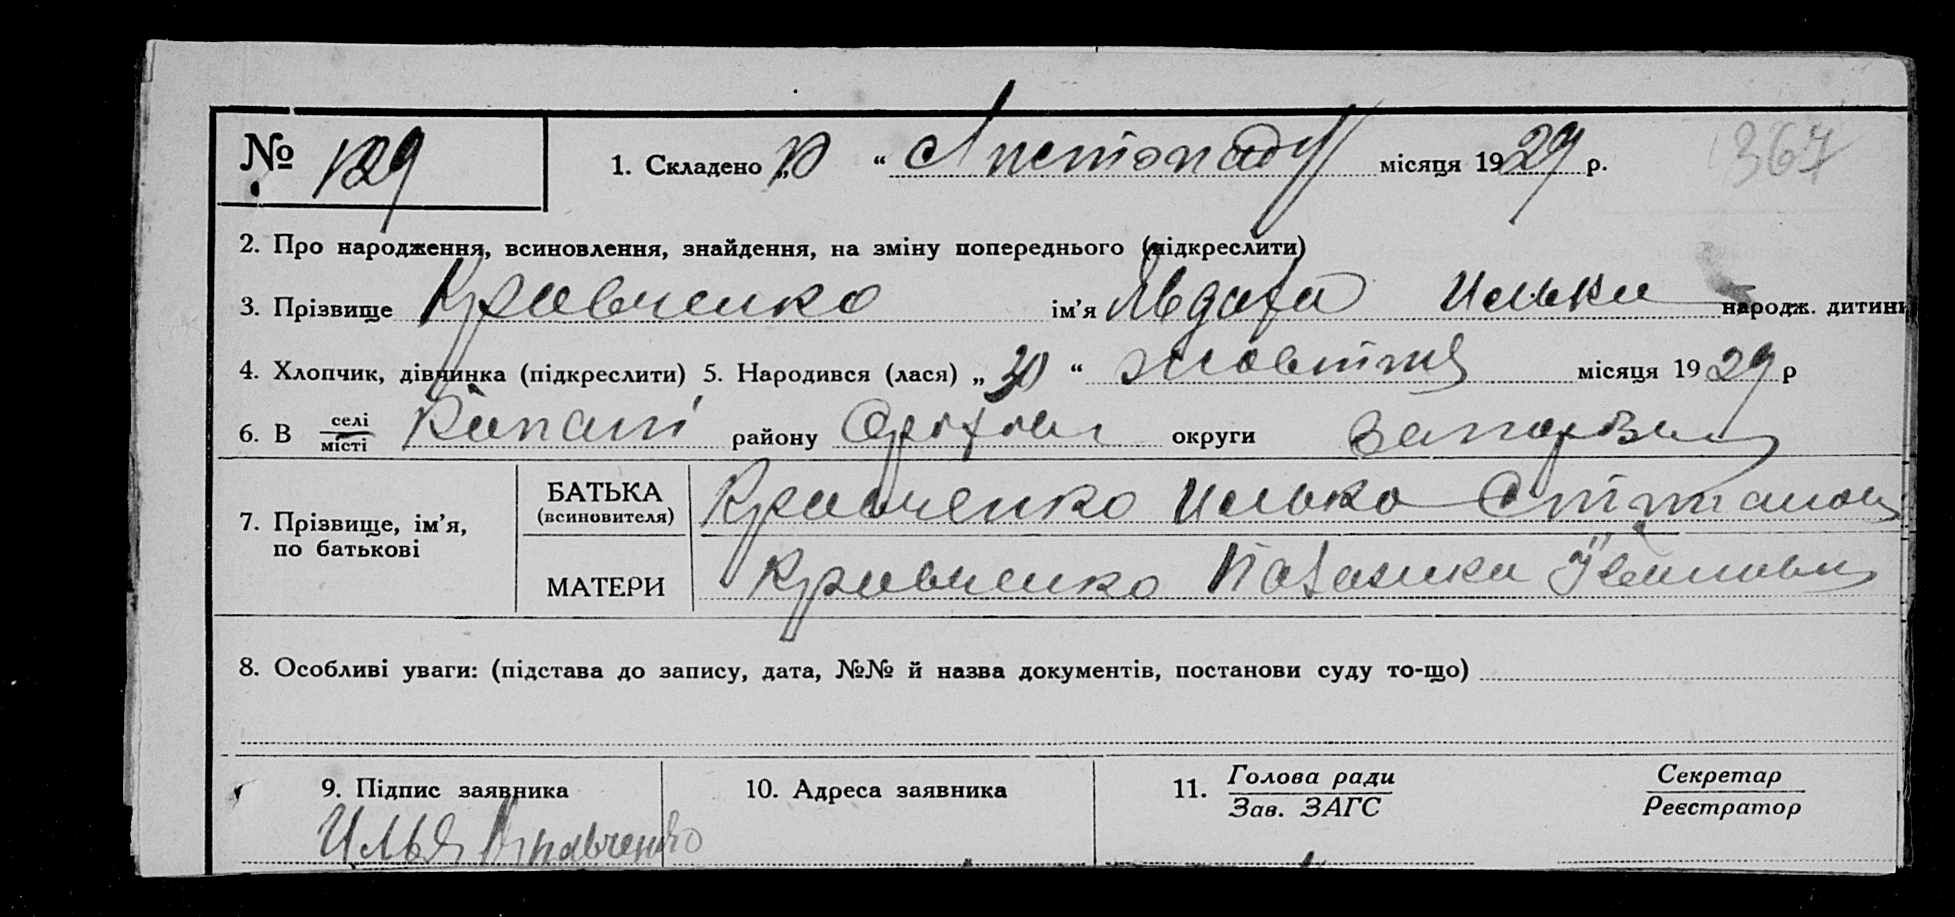 № 129 1. Складено „10 “ Листопаду місяця 1929 р. 367
2. Про народження, всиновлення, знайдення, на зміну попереднього (підкреслити)
3. Прізвище Кравченко ім’я Явдоха Илька народж. дитини
4. Хлопчик, дівчинка (підкреслити) 5. Народився (лася) „30 “ жовтня місяця 1929 р
6. В селі місті Копані району Оріхові округи Запорізьк
7. Прізвище, ім’я, по батькові
БАТЬКА (всиновителя) Кравченко Илько
МАТЕРИ Кравченко Палажка
8. Особливі уваги: (підстава до запису, дата, №№ й назва документів, постанови суду то-що)
9. Підпис заявника 10. Адреса заявника 11. Голова ради Зав. ЗАГС Секретар Реєстратор
Илья Кравченко